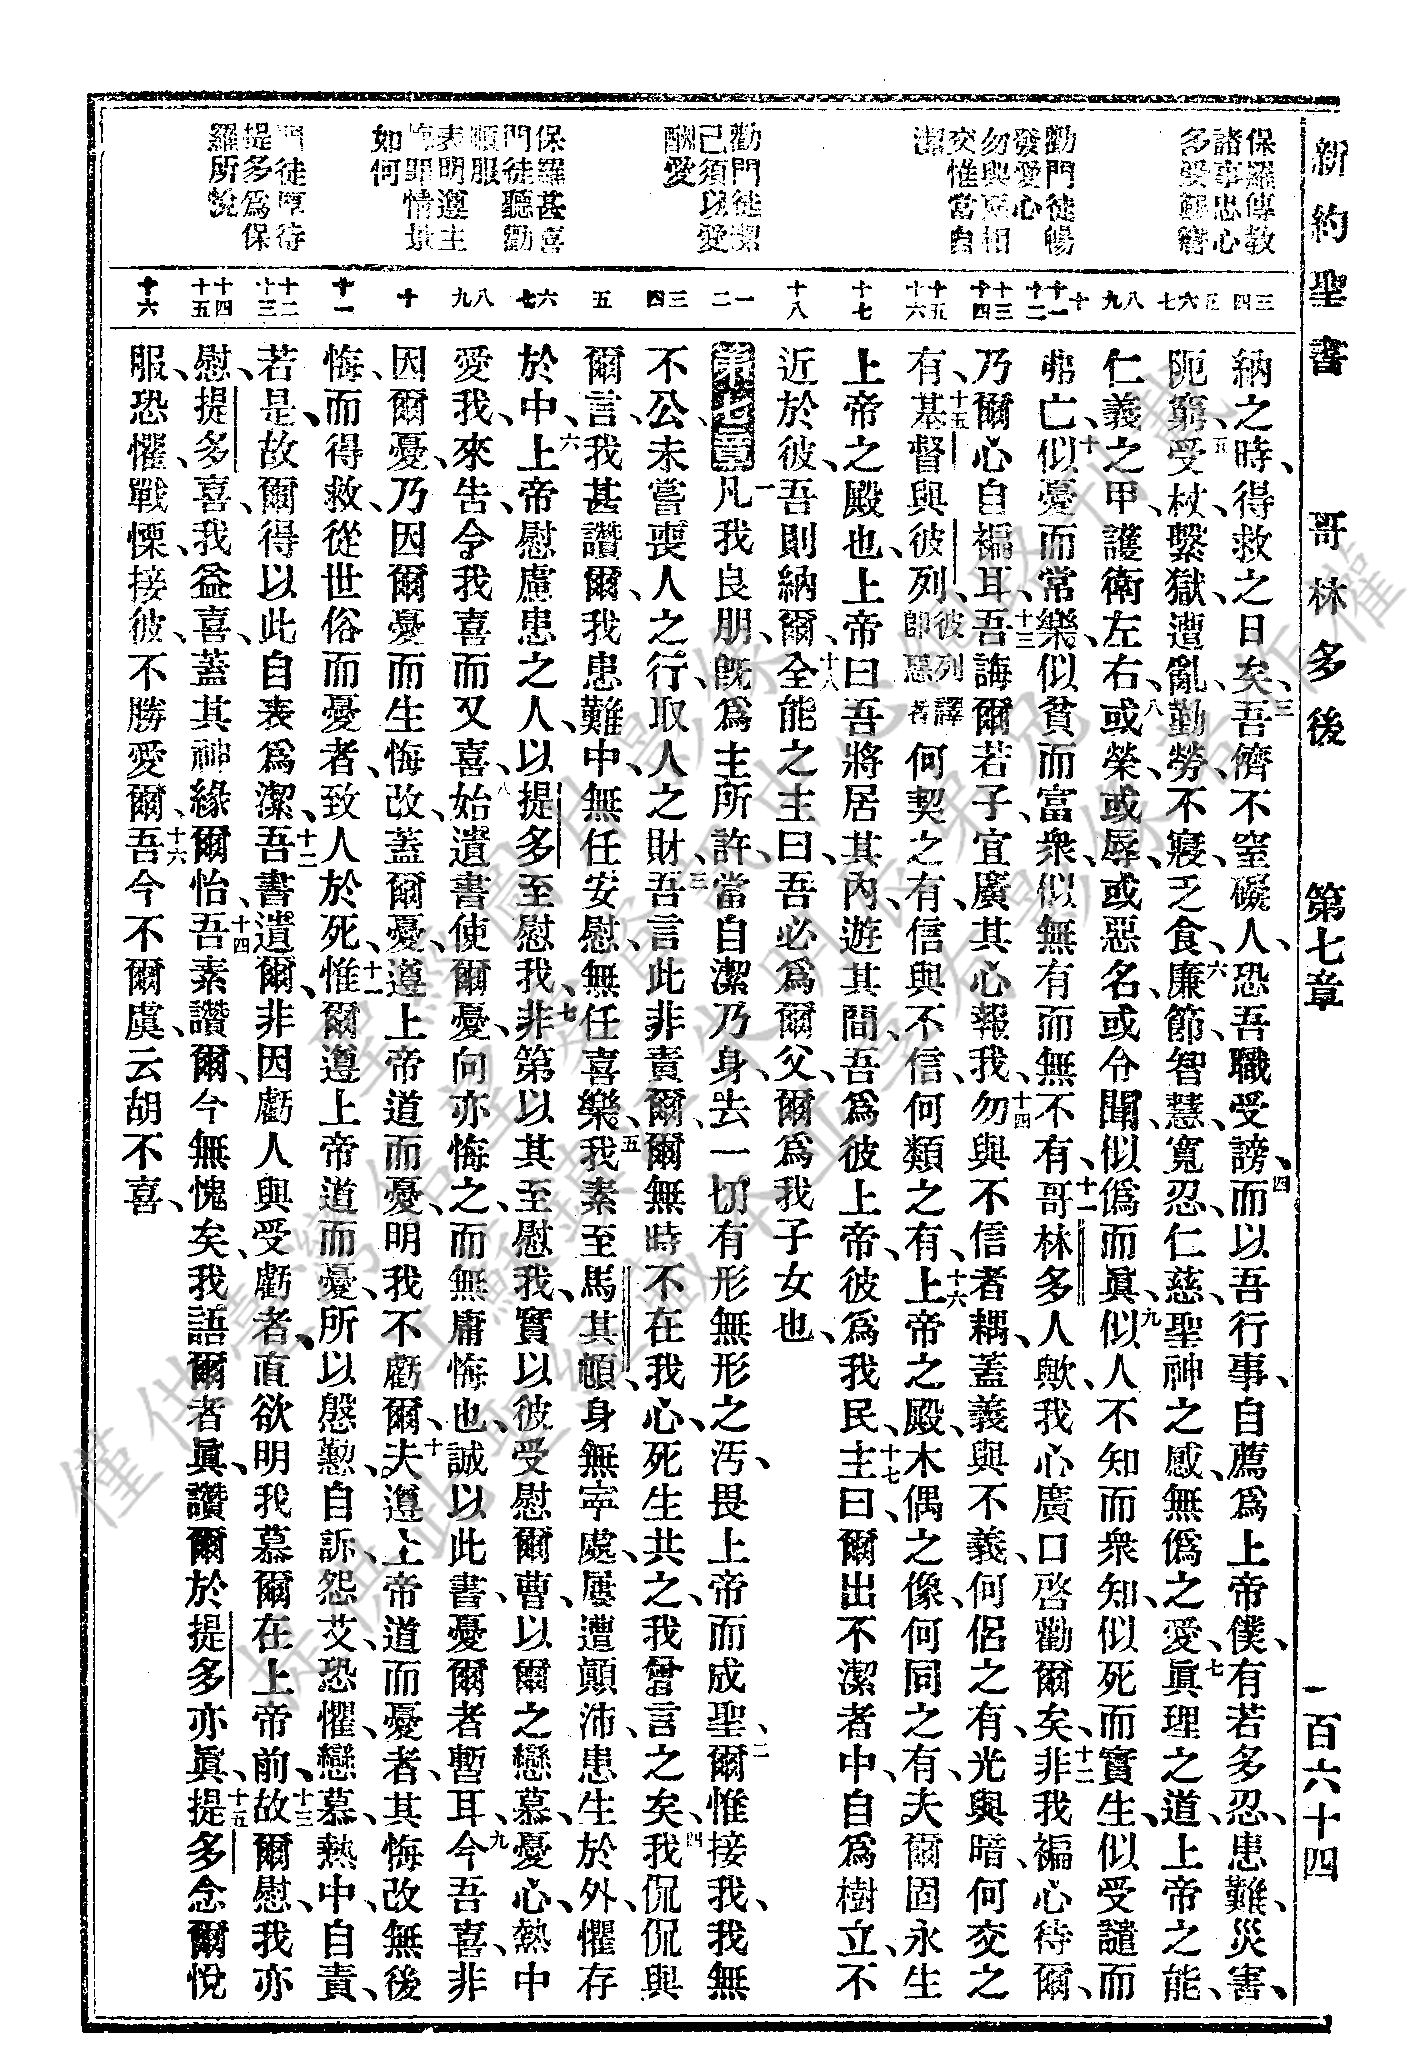 新約聖書　哥林多後　第七章　一百六十四
保羅傳教
諸事忠心
多受艱窘
勸門徒暢
發愛心
勿與惡相
交惟當自
潔
勸門徒潔
己須以愛
酬愛
保羅甚喜
門徒聽勸
順服
表明遵主
悔罪情景
如何
門徒厚待
提多為保
羅所悅
三 四 五 六 七 八 九 十 十一 十二 十三 十四 十五 十六 十七 十八 一 二 三 四 五 六 七 八 九 十 十一 十二 十三 十四 十五 十六
納之時、得救之日矣、三吾儕不窒礙人、恐吾職受謗、四而以吾行事、自薦為上帝僕、有若多忍、患難、災害、
阨窮、五受杖、繫獄、遭亂、勤勞、不寢、乏食、六廉節、智慧、寬忍、仁慈、聖神之感、無偽之愛、七眞理之道、上帝之能、
仁義之甲、護衛左右、八或榮、或辱、或惡名、或令聞、似偽而眞、九似人不知而衆知、似死而實生、似受譴而
弗亡、十似憂而常樂、似貧而富衆、似無有而無不有、十一哥林多人歟、我心廣口啓勸爾矣、十二非我褊心待爾、
乃爾心自褊耳、十三吾誨爾若子、宜廣其心報我、十四勿與不信者耦、蓋義與不義、何侶之有、光與暗、何交之
有、十五基督與彼列彼列譯即惡者何契之有、信與不信、何類之有、十六上帝之殿、木偶之像、何同之有、夫爾固永生
上帝之殿也、上帝曰、吾將居其內、遊其間、吾為彼上帝、彼為我民、十七主曰、爾出不潔者中、自為樹立、不
近於彼、吾則納爾、十八全能之主曰、吾必為爾父、爾為我子女也、
第七章一凡我良朋、旣為主所許、當自潔乃身、去一切有形無形之汚、畏上帝而成聖、二爾惟接我、我無
不公、未嘗喪人之行、取人之財、三吾言此非責爾、爾無時不在我心、死生共之、我曾言之矣、四我侃侃與
爾言、我甚讚爾、我患難中、無任安慰、無任喜樂、五我素至馬其頓、身無寧處、屢遭顛沛、患生於外、懼存
於中、六上帝慰慮患之人、以提多至慰我、七非第以其至慰我、實以彼受慰爾曹、以爾之戀慕、憂心、熱中
愛我、來告、令我喜而又喜、八始遺書使爾憂、向亦悔之、而無庸悔也、誠以此書、憂爾者暫耳、九今吾喜、非
因爾憂、乃因爾憂而生悔改、蓋爾憂、遵上帝道而憂、明我不虧爾、十夫遵上帝道而憂者、其悔改無後
悔、而得救、從世俗而憂者、致人於死、十一惟爾遵上帝道而憂、所以慇懃、自訴、怨艾、恐懼、戀慕、熱中、自責、
若是、故爾得以此自表為潔、十二吾書遺爾、非因虧人與受虧者、直欲明我慕爾在上帝前、十三故爾慰、我亦
慰、提多喜、我益喜、蓋其神緣爾怡、十四吾素讚爾、今無愧矣、我語爾者眞、讚爾於提多亦眞、十五提多念爾悅
服、恐懼、戰慄、接彼、不勝愛爾、十六吾今不爾虞、云胡不喜、